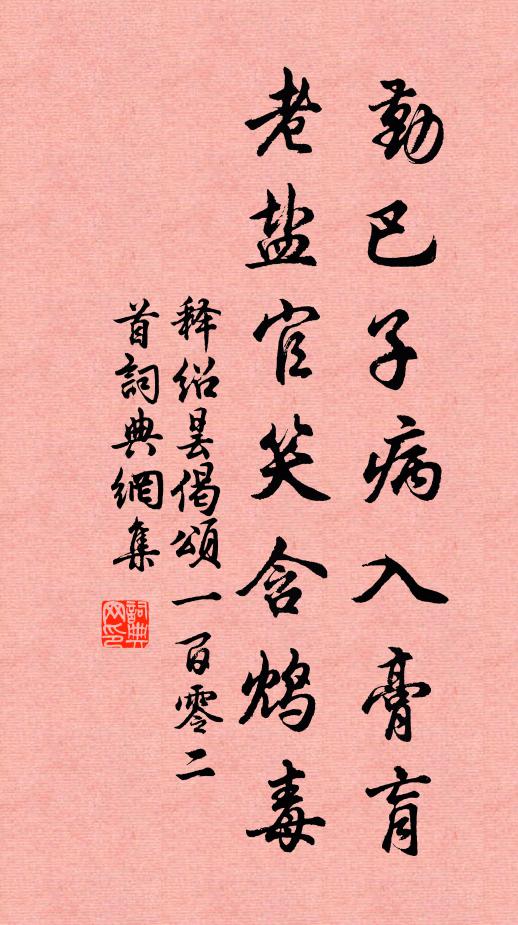 勤巴子病入膏肓
老盐官笑含鸩毒
释绍昙偈頌一百零二
首詞典網集
詞典网印